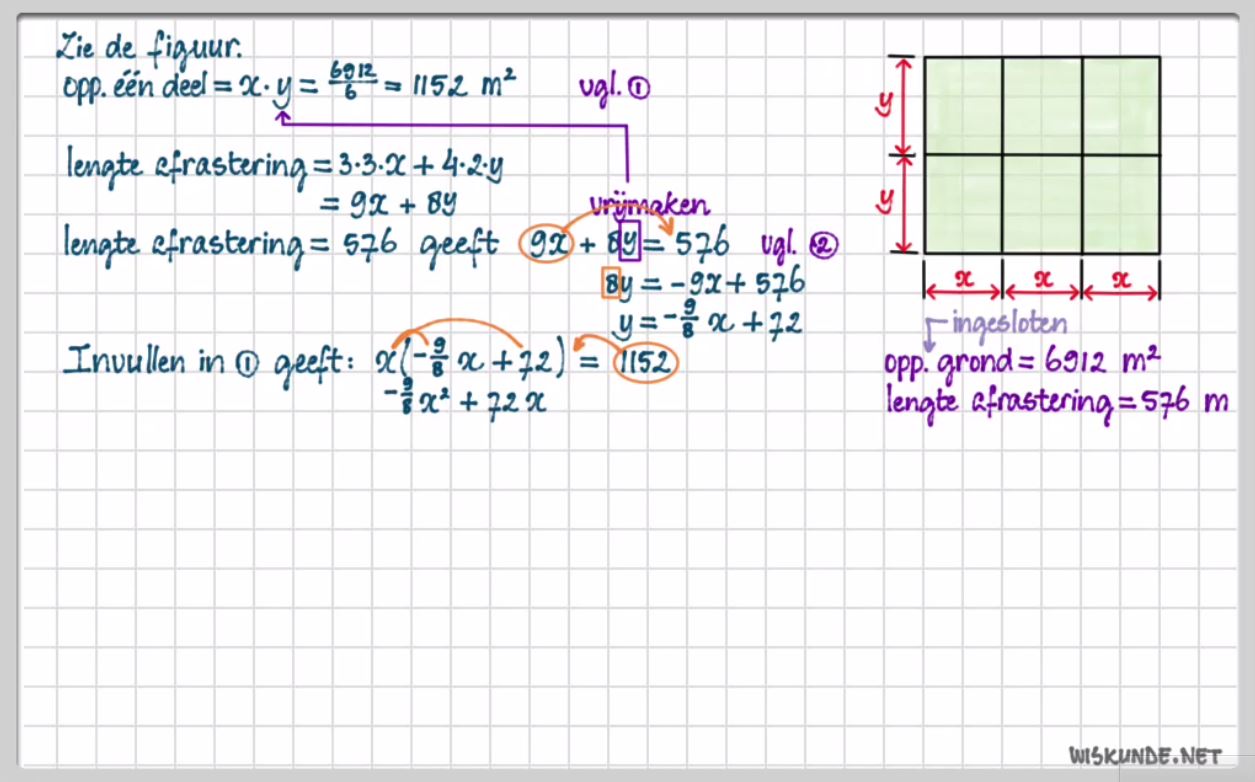 Zie de figuur.
opp. één deel = x · y = 6912/6 = 1152 m² vgl. ①
lengte afrastering = 3·3·x + 4·2·y
= 9x + 8y
vrijmaken
lengte afrastering = 576 geeft 9x + 8y = 576 vgl. ②
8y = -9x + 576
y = -9/8 x + 72
Invullen in ① geeft: x(-9/8 x + 72) = 1152
-9/8 x² + 72x
y
y
x x x
ingesloten
opp. grond = 6912 m²
lengte afrastering = 576 m
WISKUNDE.NET